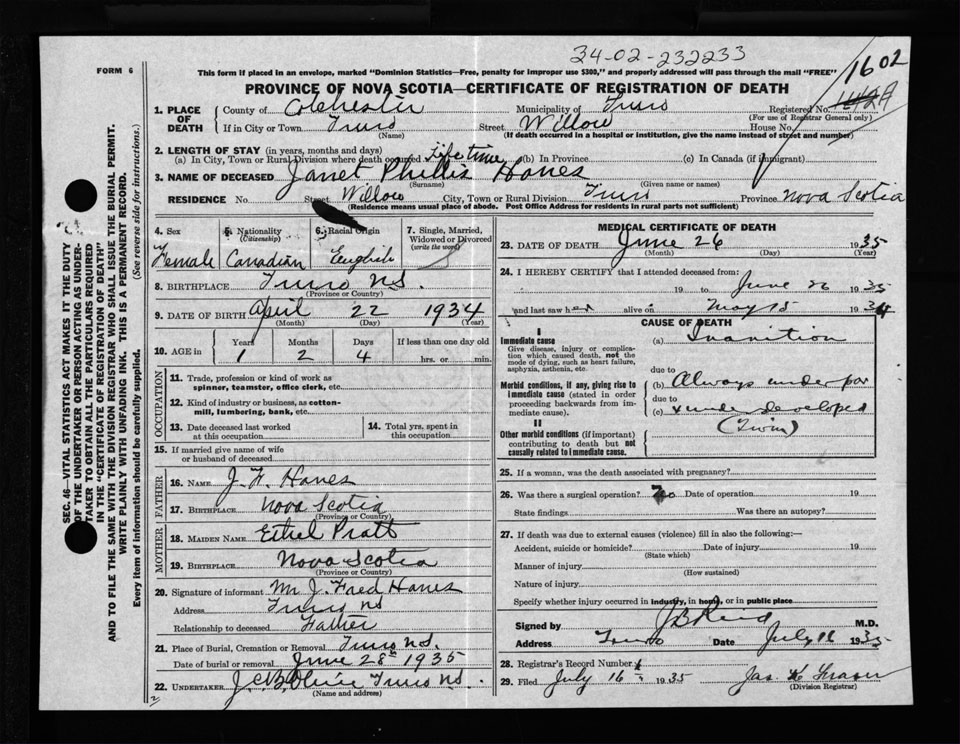 34-02-232233
FORM 6
1602
This form if placed in an envelope, marked "Dominion Statistics—Free, penalty for improper use $300," and properly addressed will pass through the mail "FREE"
PROVINCE OF NOVA SCOTIA—CERTIFICATE OF REGISTRATION OF DEATH
1. PLACE OF DEATH
County of Colchester Municipality of Truro Registered No.
(For use of Registrar General only)
If in City or Town Truro Street Willow House No.
(Name) (If death occurred in a hospital or institution, give the name instead of street and number)
2. LENGTH OF STAY (in years, months and days)
(a) In City, Town or Rural Division where death occurred Life time (b) In Province (c) In Canada (if immigrant)
3. NAME OF DECEASED Janet Phillis Hanes
(Surname) (Given name or names)
RESIDENCE No. Street Willow City, Town or Rural Division Truro Province Nova Scotia
(Residence means usual place of abode. Post Office Address for residents in rural parts not sufficient)
4. Sex 5. Nationality (Citizenship) 6. Racial Origin 7. Single, Married, Widowed or Divorced (write the word)
Female Canadian English
8. BIRTHPLACE Truro N.S.
(Province or Country)
9. DATE OF BIRTH April 22 1934
(Month) (Day) (Year)
10. AGE in Years Months Days If less than one day old
1 2 4 hrs. or min.
OCCUPATION
11. Trade, profession or kind of work as spinner, teamster, office clerk, etc.
12. Kind of industry or business, as cotton-mill, lumbering, bank, etc.
13. Date deceased last worked at this occupation
14. Total yrs. spent in this occupation
15. If married give name of wife or husband of deceased
FATHER
16. NAME J. F. Hanes
17. BIRTHPLACE Nova Scotia
(Province or Country)
MOTHER
18. MAIDEN NAME Ethel Pratt
19. BIRTHPLACE Nova Scotia
(Province or Country)
20. Signature of informant Mr J. Fred Hanes
Address Truro NS
Relationship to deceased Father
21. Place of Burial, Cremation or Removal Truro N.S.
Date of burial or removal June 28th 1935
22. UNDERTAKER Truro N.S.
(Name and address)
MEDICAL CERTIFICATE OF DEATH
23. DATE OF DEATH June 26 1935
(Month) (Day) (Year)
24. I HEREBY CERTIFY that I attended deceased from:
19 to June 26 1935
and last saw her alive on May 15 19
CAUSE OF DEATH
I
Immediate cause
Give disease, injury or complication which caused death, not the mode of dying, such as heart failure, asphyxia, asthenia, etc.
(a) Inanition
due to
Morbid conditions, if any, giving rise to immediate cause (stated in order proceeding backwards from immediate cause).
(b) Always under par
due to
(c) & under developed
(Twin)
II
Other morbid conditions (if important) contributing to death but not causally related to immediate cause.
25. If a woman, was the death associated with pregnancy?
26. Was there a surgical operation? No Date of operation 19
State findings Was there an autopsy?
27. If death was due to external causes (violence) fill in also the following:—
Accident, suicide or homicide? Date of injury 19
(State which)
Manner of injury
(How sustained)
Nature of injury
Specify whether injury occurred in industry, in home, or in public place
Signed by J B Reid M.D.
Address Truro Date July 12 1935
28. Registrar's Record Number
29. Filed July 16 1935 Jas. K Fraser
(Division Registrar)
SEC. 46—VITAL STATISTICS ACT MAKES IT THE DUTY
OF THE UNDERTAKER OR PERSON ACTING AS UNDER-
TAKER TO OBTAIN ALL THE PARTICULARS REQUIRED
IN THE "CERTIFICATE OF REGISTRATION OF DEATH"
AND TO FILE THE SAME WITH THE DIVISION REGISTRAR WHO SHALL ISSUE THE BURIAL PERMIT.
WRITE PLAINLY WITH UNFADING INK. THIS IS A PERMANENT RECORD.
Every item of information should be carefully supplied. (See reverse side for instructions.)